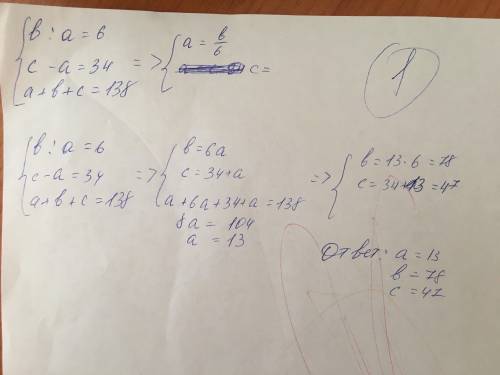 в : a = 6
c - a = 34
a + в + c = 138
=>
a = в/6
c =
1
в : a = 6
c - a = 34
a + в + c = 138
=>
в = 6a
c = 34 + a
a + 6a + 34 + a = 138
8a = 104
a = 13
=>
в = 13 · 6 = 78
c = 34 + 13 = 47
Ответ: a = 13
в = 78
c = 47